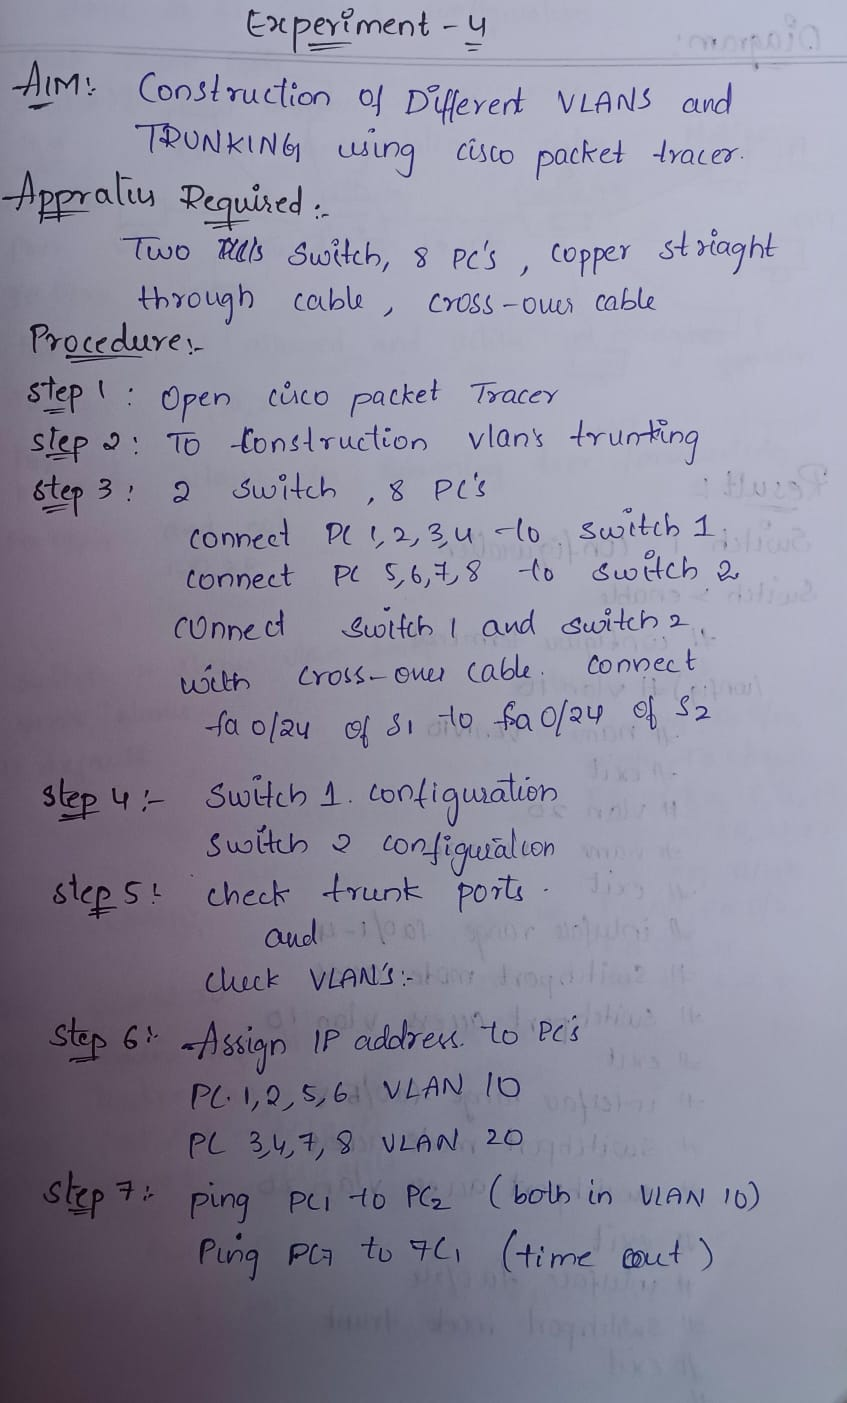 Experiment - 4
AIM: Construction of Different VLANS and
TRUNKING using cisco packet tracer.
Appratius Required :-
Two Switch, 8 PC's, copper striaght
through cable, cross-over cable
Procedure:-
step 1 : Open cisco packet Tracer
step 2 : To Construction vlan's trunking
step 3 : 2 switch, 8 PC's
connect PC 1,2,3,4 to switch 1.
connect PC 5,6,7,8 to switch 2
connect switch 1 and switch 2
with cross-over cable. connect
fa 0/24 of S1 to fa 0/24 of S2
step 4 :- Switch 1. configuration
switch 2 configuration
step 5 : check trunk ports.
and
check VLAN's :-
step 6 :- Assign IP address. to PC's
PC. 1,2,5,6 VLAN 10
PC 3,4,7,8 VLAN 20
step 7 :- ping PC1 to PC2 (both in VLAN 10)
Ping PC7 to 7C1 (time out)